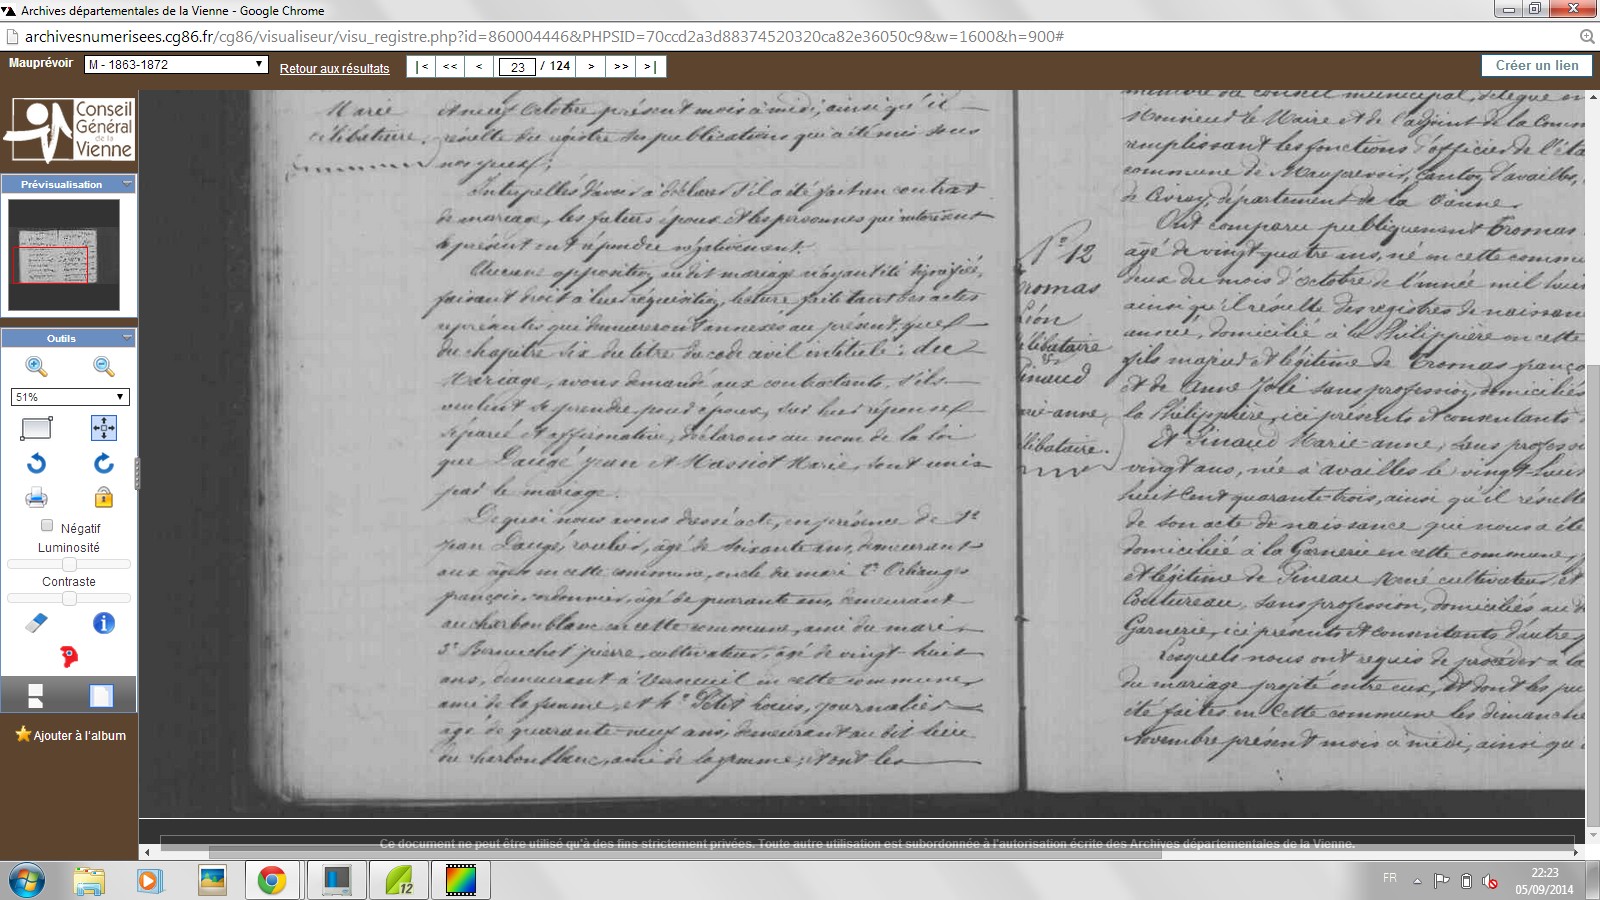 Archives départementales de la Vienne - Google Chrome
archivesnumerisees.cg86.fr/cg86/visualiseur/visu_registre.php?id=860004446&PHPSID=70ccd2a3d88374520320ca82e36050c9&w=1600&h=900#
Mauprévoir M - 1863-1872 Retour aux résultats |< << < 23 / 124 > >> >| Créer un lien
Conseil
Général
de la
Vienne
Prévisualisation
Outils
51%
Négatif
Luminosité
Contraste
Ajouter à l'album
Marie
célibataire.
octobre présent mois à midi, ainsi qu'il
résulte du régistre des publications qui a été mis sous
nos yeux;
Interpellés d'avoir à déclarer s'il a été fait un contrat
de mariage, les futurs époux et les personnes qui autorisent
le présent ont répondu négativement.
Aucune opposition audit mariage n'ayant été signifiée,
faisant droit à leur réquisition, lecture faite tant des actes
représentés qui demeureront annexés au présent, que
du chapitre six du titre du code civil intitulé: du
Mariage, avons demandé aux contractants, s'ils
veulent se prendre pour époux, sur leur réponse
séparée et affirmative, déclarons au nom de la loi
que Daugé Jean et Massiot Marie, sont unis
par le mariage.
De quoi nous avons dressé acte, en présence de 1°
Jean Daugé, âgé de soixante ans, demeurant
en cette commune, oncle du mari 2°
françois, cordonnier, âgé de quarante ans, demeurant
au charbon blanc en cette commune, ami du mari
3° pierre, cultivateur, âgé de vingt-huit
ans, demeurant à Verneuil en cette commune,
ami de la femme, et 4° Petit Louis, journalier
âgé de quarante-neuf ans, demeurant au dit lieu
du charbon blanc, ami de la femme; et ont les
N° 12
Tromas
Léon
célibataire
&
Pinaud
Marie-anne,
célibataire.
membre du conseil municipal, délégué en
Monsieur le Maire et de l'adjoint de la Comm
remplissant les fonctions d'officier de l'éta
commune de Mauprévoir, Canton d'availles,
de Civray, département de la Vienne
Ont comparu publiquement Tromas
âgé de vingt-quatre ans, né en cette commu
deux du mois d'octobre de l'année mil huit
ainsi qu'il résulte des registres de naissan
année, domicilié à la Philippière en cette
fils majeur et légitime de Tromas franço
et de Anne sans profession, domiciliés
la Philippière, ici présents et consentants
Et Pinaud Marie-anne, sans profession
vingt ans, née à availles le vingt-huit
huit cent quarante-trois, ainsi qu'il résulte
de son acte de naissance qui nous a été
domiciliée à la Garnerie en cette commune,
et légitime de Pineau René cultivateur, et
Coutureau, sans profession, domiciliés au
Garnerie, ici présents et consentants d'autre
Lesquels nous ont requis de procéder à la
du mariage projeté entre eux, et dont les pu
été faites en cette commune les dimanche
Novembre présent mois à midi, ainsi qu
Ce document ne peut être utilisé qu'à des fins strictement privées. Toute autre utilisation est subordonnée à l'autorisation écrite des Archives départementales de la Vienne.
12
FR
22:23
05/09/2014